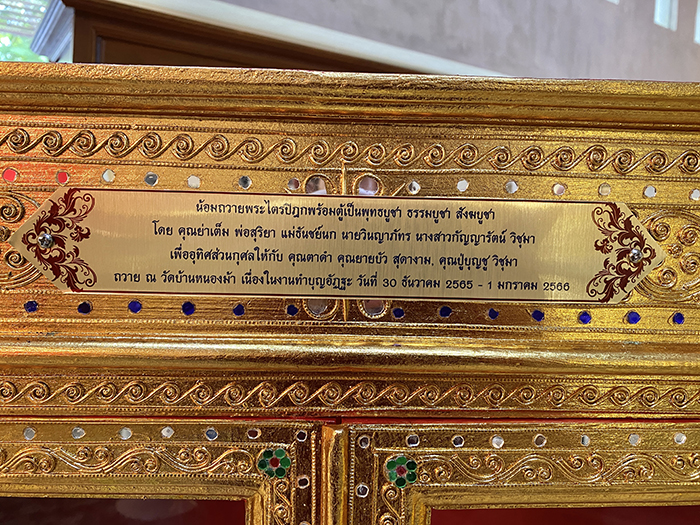 น้อมถวายพระไตรปิฎกพร้อมตู้เป็นพุทธบูชา ธรรมบูชา สังฆบูชา
โดย คุณย่าเต็ม พ่อสุริยา แม่ธันชย์นก นายวินญาภัทร นางสาวกัญญารัตน์ วิชุมา
เพื่ออุทิศส่วนกุศลให้กับ คุณตาดำ คุณยายบัว สุดางาม, คุณปู่บุญชู วิชุมา
ถวาย ณ วัดบ้านหนองผ้า เนื่องในงานทำบุญอัฏฐะ วันที่ 30 ธันวาคม 2565 - 1 มกราคม 2566